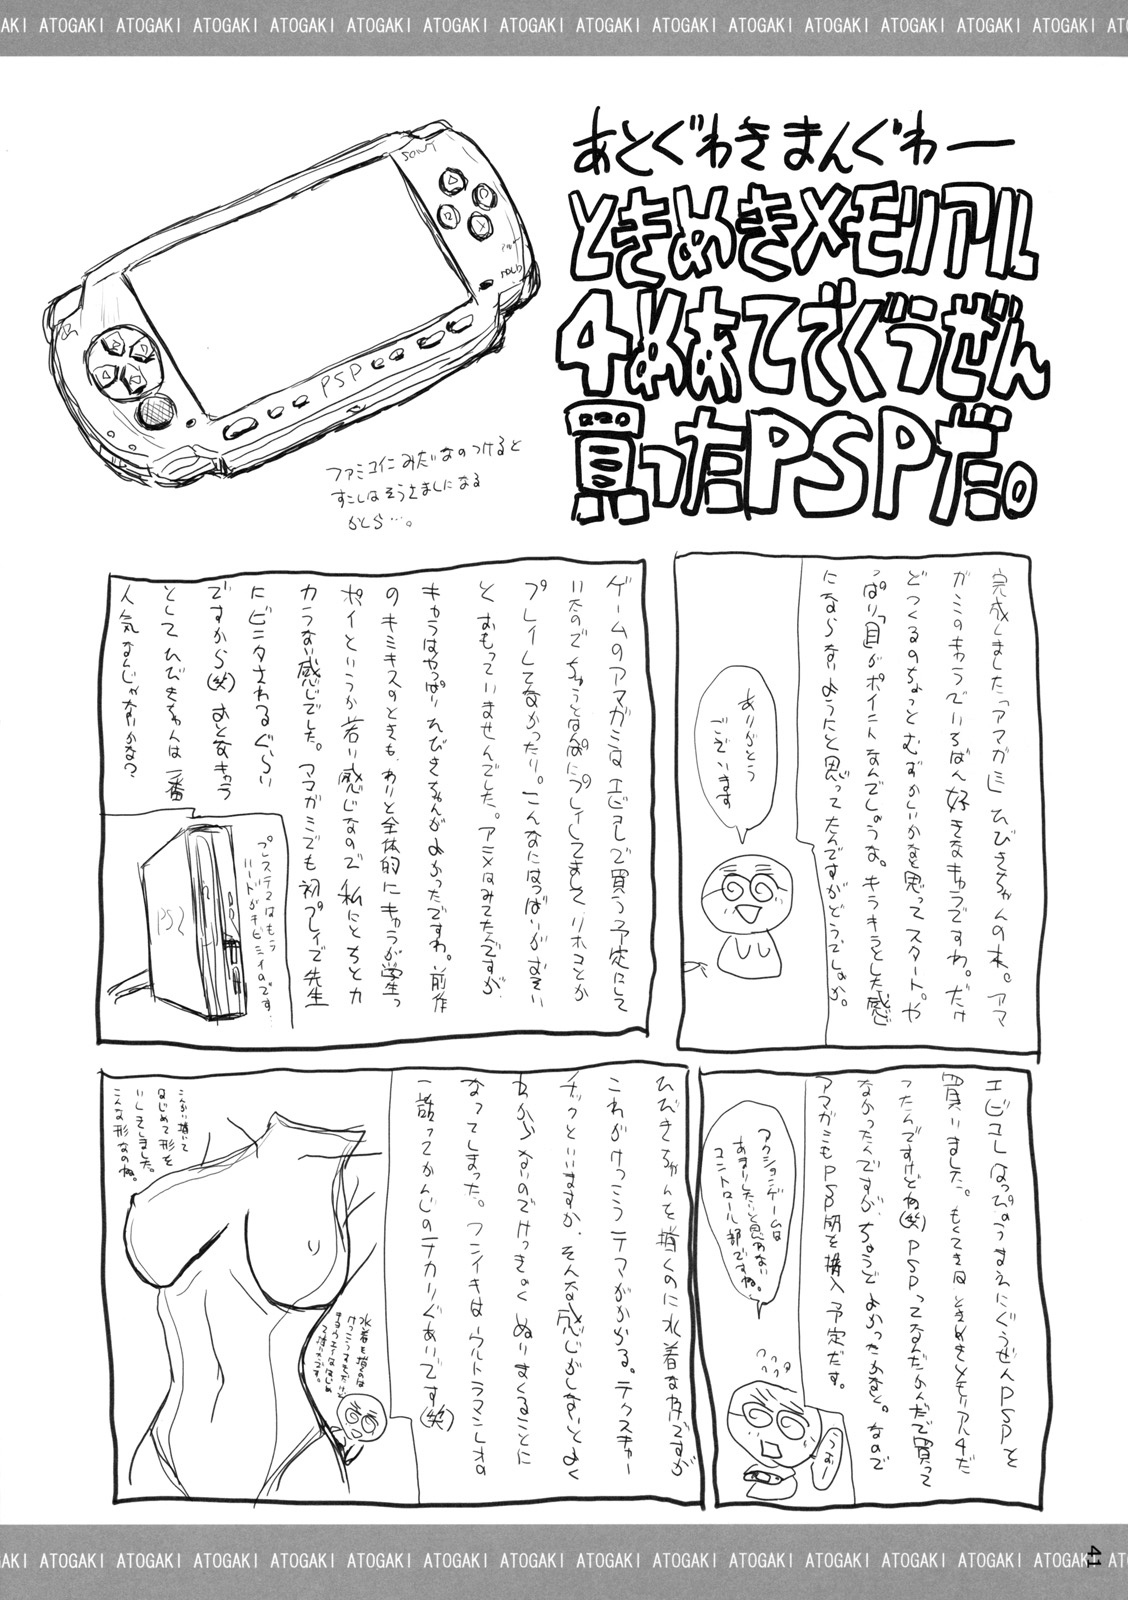 AKI ATOGAKI ATOGAKI ATOGAKI ATOGAKI ATOGAKI ATOGAKI ATOGAKI ATOGAKI ATOGAKI ATOGAKI ATOGAKI ATOGAKI ATOGAKI ATOGAKI ATO
あとぐわきまんぐわー
ときめきメモリアル
4めあてでぐうぜん
買ったPSPだ。
SONY
HOLD
PSP
ファミコンにみたいなのつけると
すこしはそうさましになる
かしら…。
完成しました「アマガミ」ひびきちゃんの本。アマ
ガミのキャラでいちばん好きなキャラですわ。だけ
どつくるのちょっとむずかしいかなと思ってスタート。や
っぱり「目」がポイントなんでしょうな。キラキラとした感じ
にならないようにと思ってたんですがどうでしょうか。
ありがとう
ございます
ゲームのアマガミはエビコレで買う予定にして
いたのでちゅうとはんぱにプレイしてましてリホコとか
プレイしてなかったり。こんなにはつばいがおそい
とおもっていませんでした。アニメはみてたですが、
キャラはやっぱりひびきちゃんがよかったですわ。前作
のキミキスのときも、わりと全体的にキャラが学生っ
ポイというか若い感じなので私にとちとカ
カらない感じでした。アマガミでも初プレイで先生
にビンタされるぐらい
ですから(笑)おとなキャラ
としてひびきちゃんは一番
人気なんじゃないかな?
プレステ2はもう
ハードがキビシイのです…
PS2
エビコレはっぴょうまえにぐうぜんPSPを
買いました。もくてきはときめきメモリアル4だ
ったんですけどね(笑)PSPってなんだかんだで買って
なかったんですが、ちょうどよかったかなと。なので
アマガミもPSP版を購入予定だす。
アクションゲームは
あまりしたいと思わない
コントロール部ですね。
ひびきちゃんを描くのに水着なわけですが
これがけっこうテマがかかる。テクスチャー
チックといいますか、そんな感じがしないとよく
わからないのでけっきょくぬりまくることに
なってしまった。フンイキはウルトラマンレオの
1話ってかんじのテカリぐあいです(笑)
こんかい描いて
はじめて形を
いしきしました。
こんな形なのね。
AKI ATOGAKI ATOGAKI ATOGAKI ATOGAKI ATOGAKI ATOGAKI ATOGAKI ATOGAKI ATOGAKI ATOGAKI ATOGAKI ATOGAKI ATOGAKI ATOGAKI ATO
41